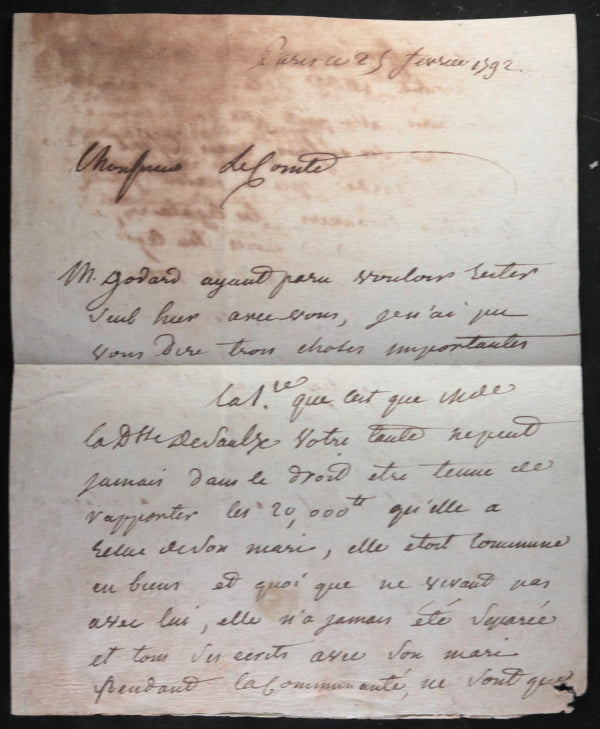 Paris ce 25 fevrier 1792.
Monsieur Le Comte
M. Godard ayant paru vouloir rester
seul hier avec vous, je n'ai pu
vous dire trois choses importantes
la 1.re que c'est que Mde
la Dsse De Saulx votre tante ne peut
jamais dans le droit etre tenue de
rapporter les 20,000tt qu'elle a
recue de son mari, elle etoit Commune
en biens et quoi que ne vivant pas
avec lui, elle n'a jamais été separée
et tous ses ecrits avec son mari
pendant la Communauté, ne sont que